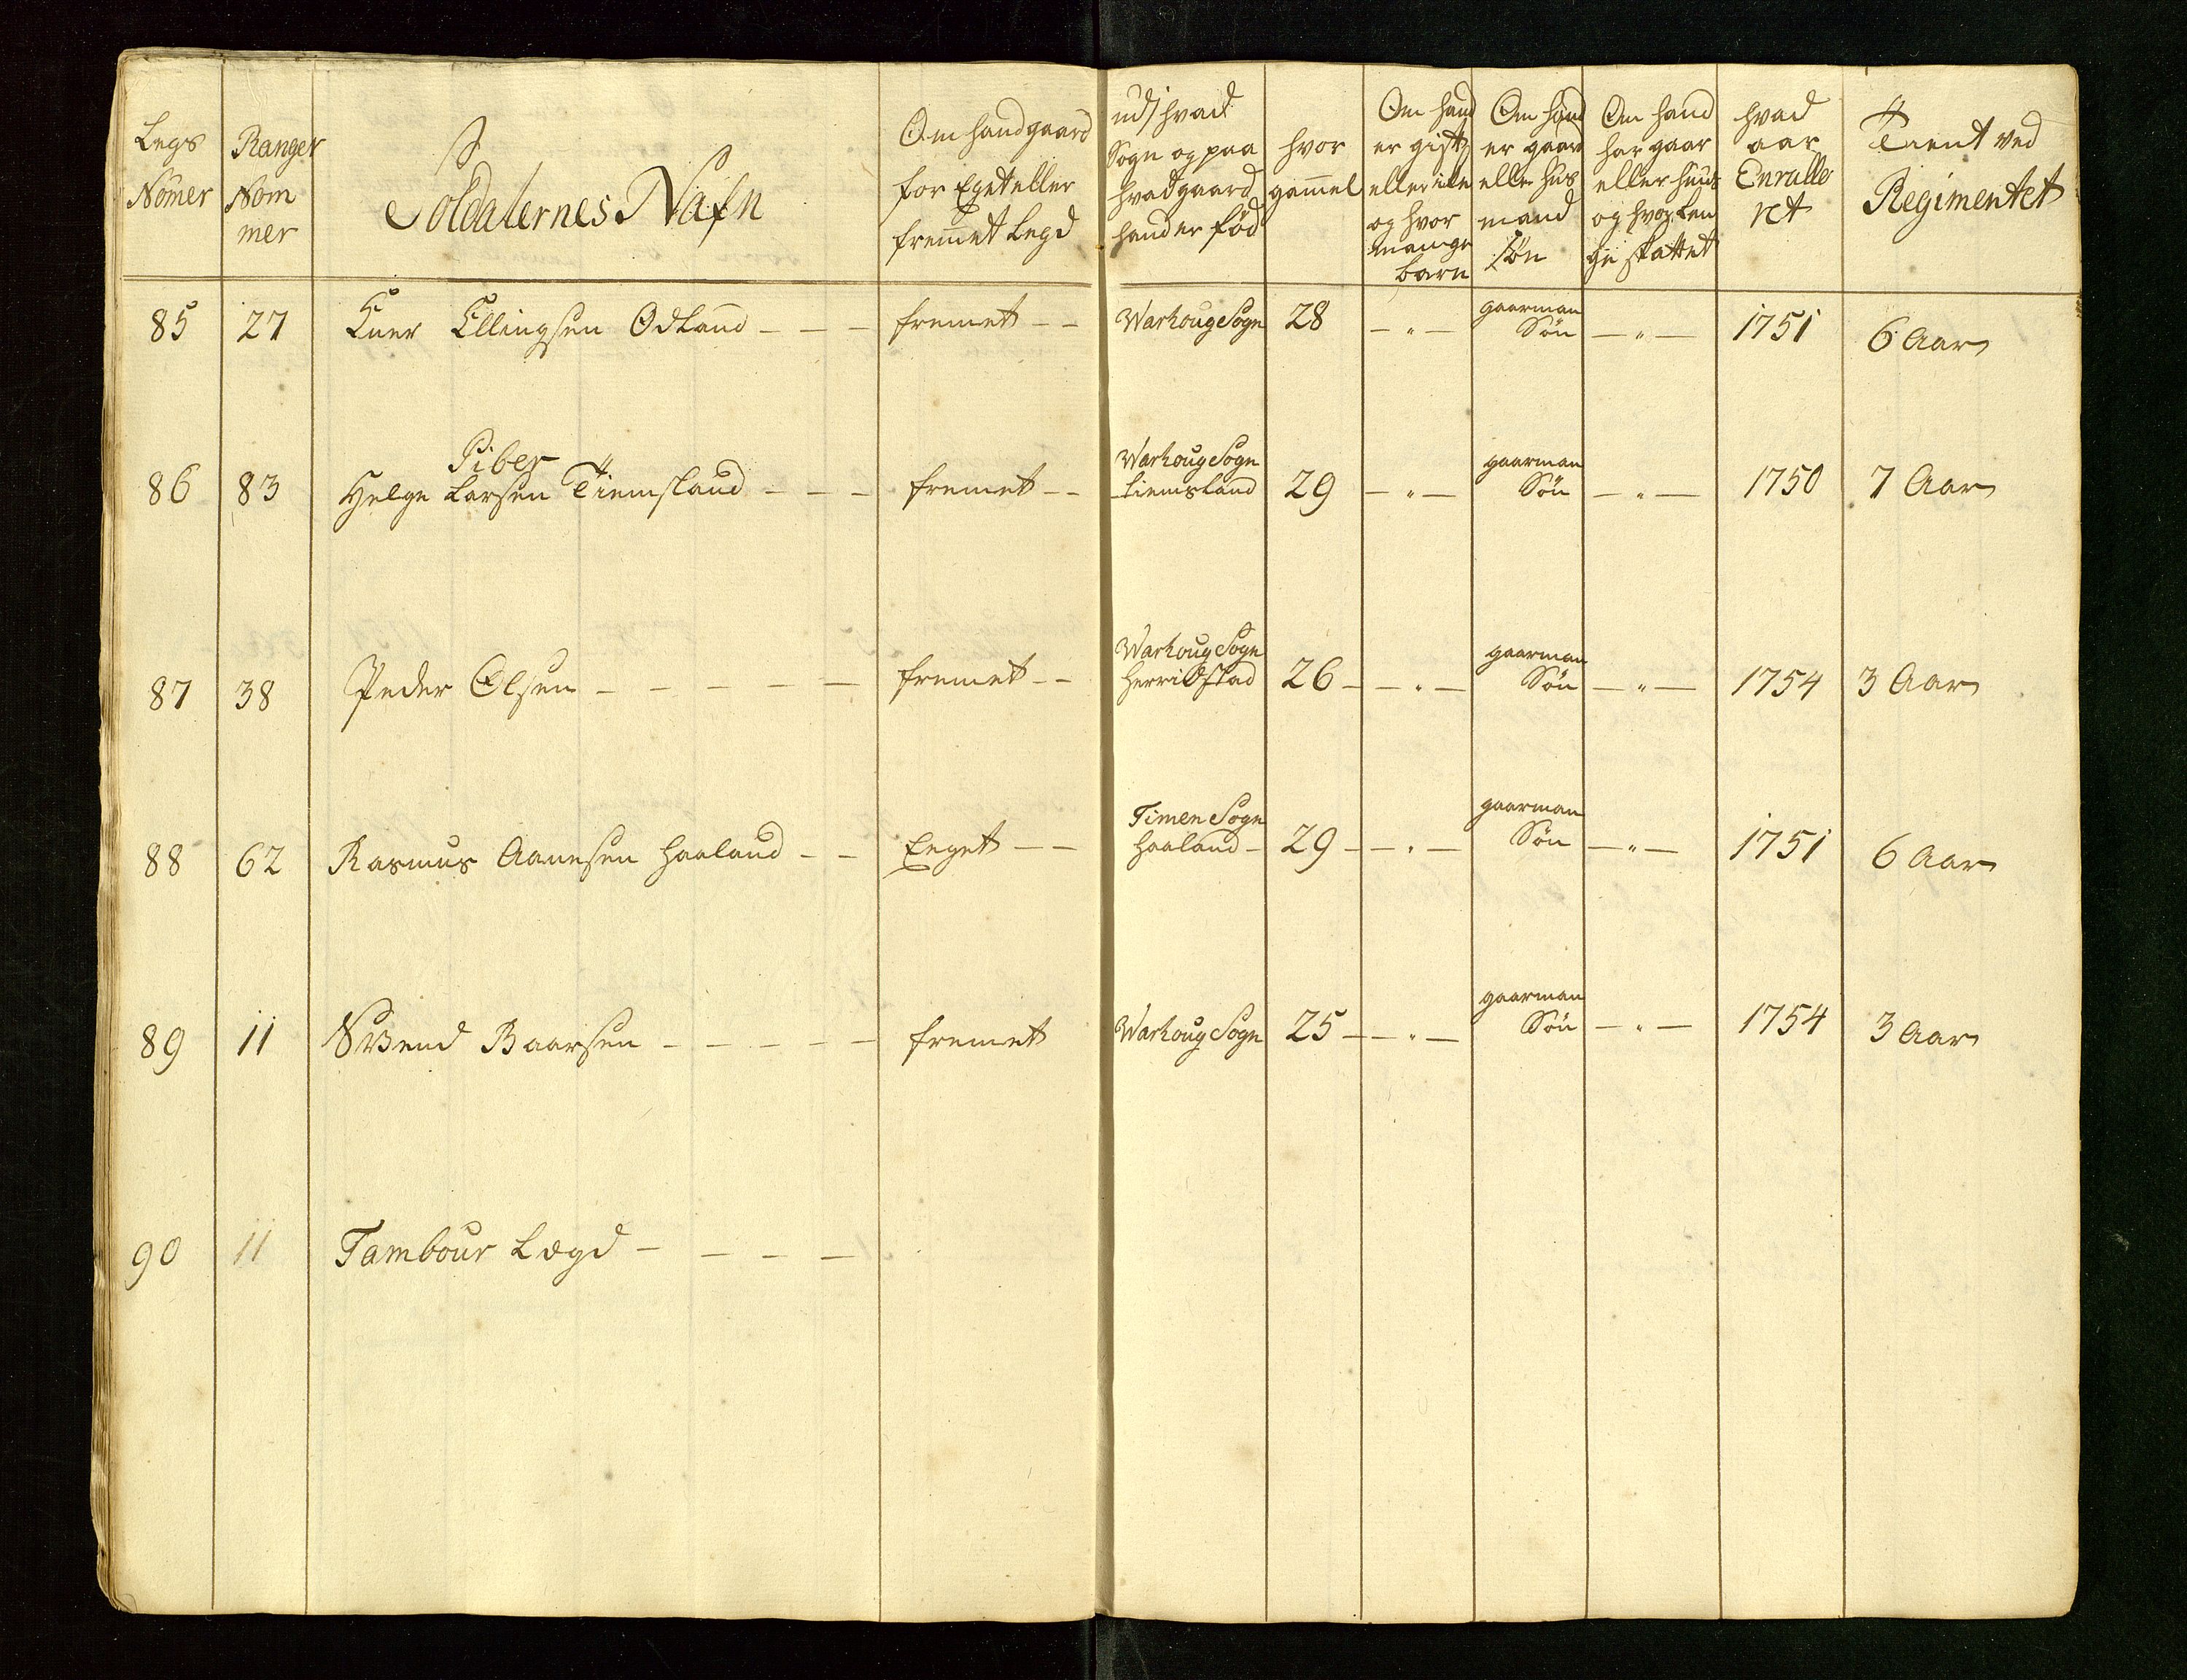 Legs Nomer | Ranger Nom mer | Soldaternes Nafn | Om hand gaard for Eget eller fremet Legd | udj hvad Sogn og paa hvad gaard hand er fød | hvor gammel | Om hand er gift eller icke og hvor mange barn | Om hand er gaar elle hus mand søn | Om hand har gaar eller huus og hvor len ge skattet | hvad aar Enrulle ret | Tient ved Regimentet
85 | 27 | Ellingsen Odland - - - | fremet - - | Warhoug Sogn | 28 | - " - | gaarman Søn | - " - | 1751 | 6 Aar
86 | 83 | Piber Helge Larsen Tiemsland - - - | fremet - - | Warhoug Sogn tiemsland | 29 | - " - | gaarman Søn | - " - | 1750 | 7 Aar
87 | 38 | Peder Olsen - - - - - | fremet - - | Warhoug Sogn herridstad | 26 | - " - | gaarman Søn | - " - | 1754 | 3 Aar
88 | 62 | Rasmus Aanesen Haaland - - | Eeget - - | Timen Sogn haaland - | 29 | - " - | gaarman Søn | - " - | 1751 | 6 Aar
89 | 11 | Svend Baarsen - - - - - | fremet | Warhoug Sogn | 25 | - " - | gaarman Søn | - " - | 1754 | 3 Aar
90 | 11 | Tambour Lægd - - - -